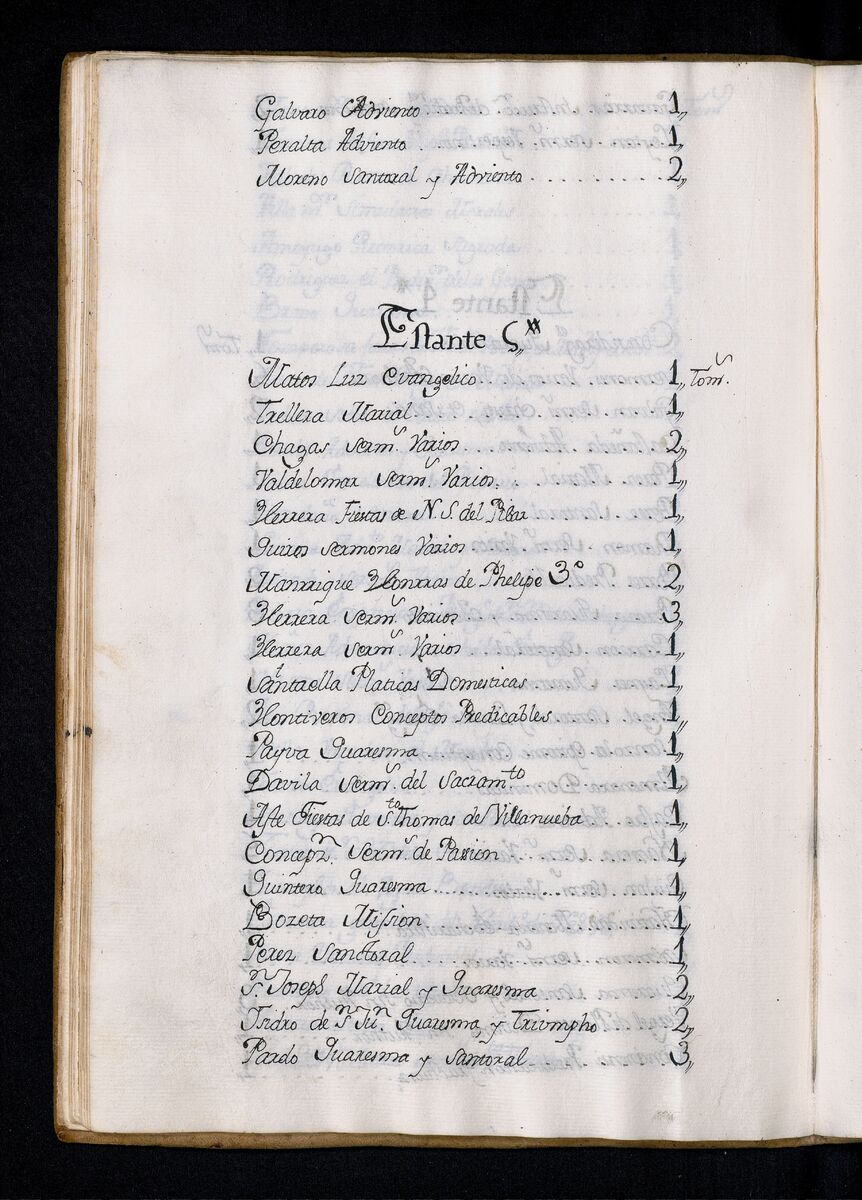 Galvaro Adviento 1,,
Peralta Adviento 1,,
Moreno Santoral y Adviento . . . . . . . . . . 2,,
Estante 5,,
Matos Luz Evangelico . . 1,, Toms.
Trellera Marial 1,,
Chagas Serms. Varios 2,,
Valdelomar Serms. Varios. 1,,
Herrera Fiestas de N. S. del Pilar 1,,
Quiros Sermones Varios 1,,
Manrrique Honrras de Phelipe 3.º 2,,
Herrera Serms. Varios 3,,
Herrera Serms. Varios 1,,
Santaella Platicas Domesticas 1,,
Hontiveros Conceptos Predicables 1,,
Payva Quaresma 1,,
Davila Serms. del Sacramto 1,,
Aste Fiestas de Sto Thomas de Villanueba 1,,
Concepn. Serms. de Passion 1,,
Quintero Quaresma 1,,
Bozeta Mission 1,,
Perez Sanctoral 1,,
Sn. Joseph Marial y Quaresma 2,,
Isidro de Sn Jun. Quaresma, y Triumpho 2,,
Pardo Quaresma y Santoral 3,,